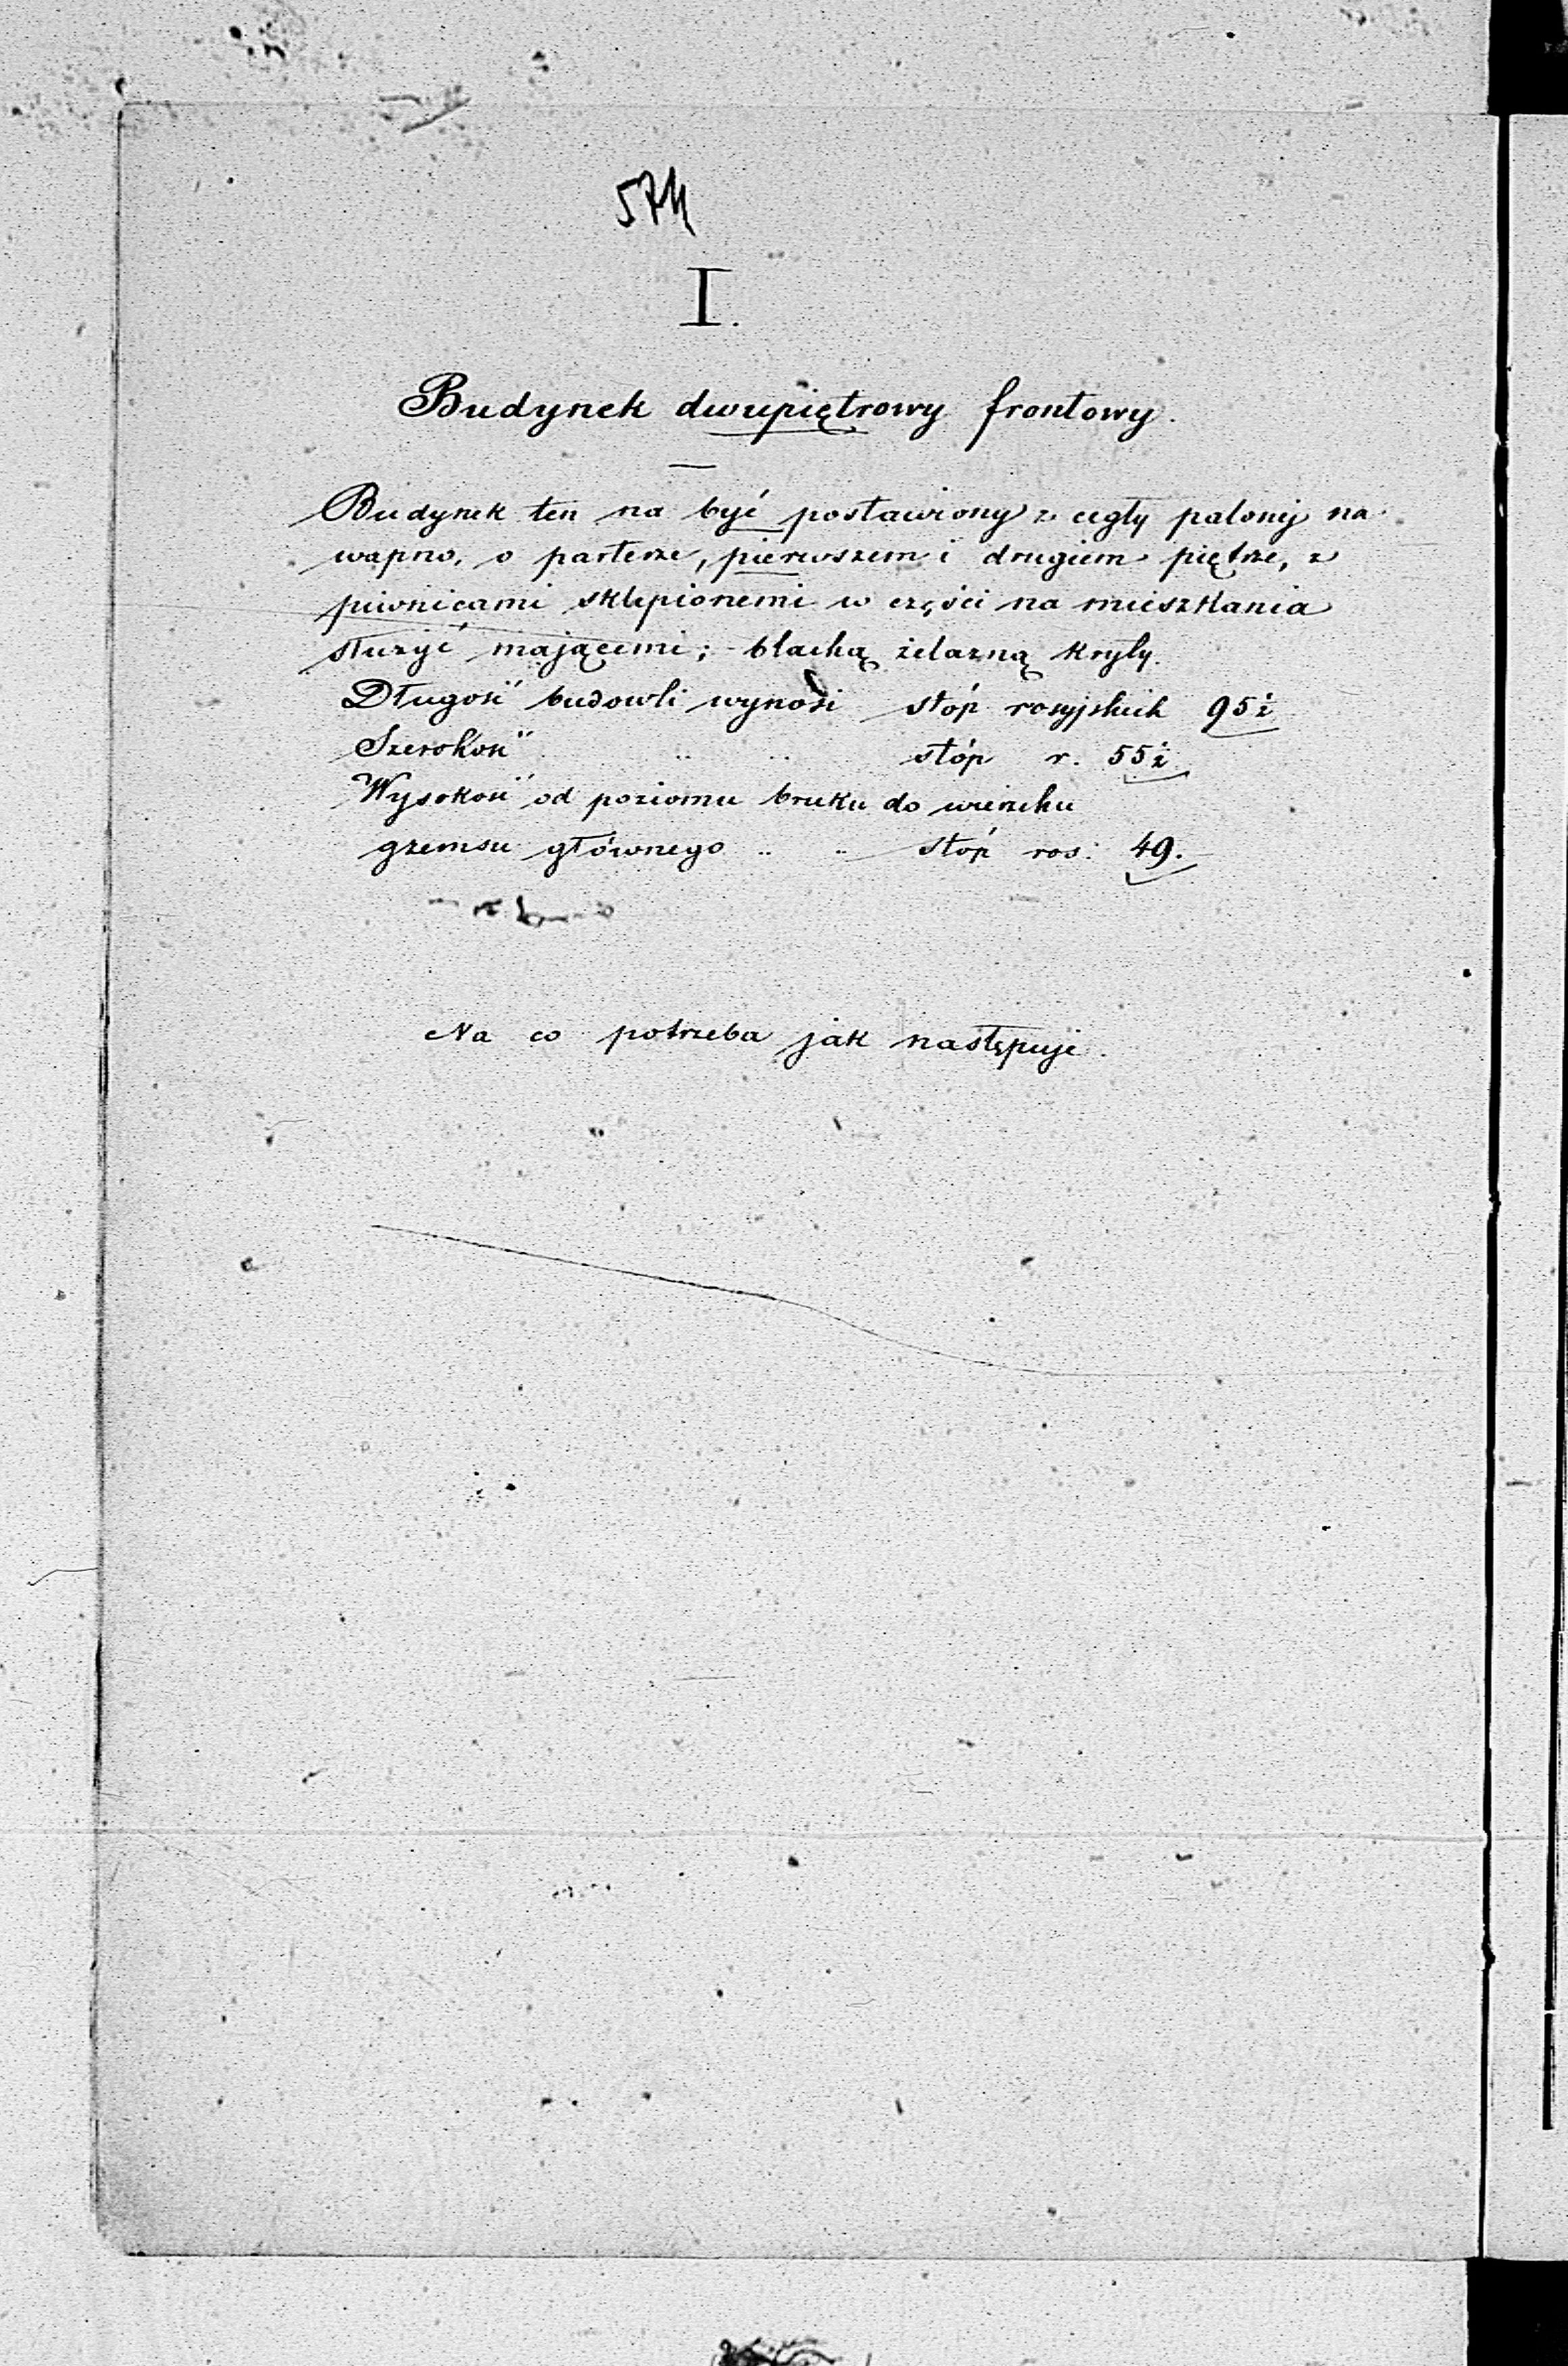 I.
Budynek dwupiętrowy frontowy.
Budynek ten na być postawiony z cegły palonéj na
wapno, o parterze, pierwszem i drugiem piętrze, z
piwnicami sklepionemi w części na mieszkania
służyć mającemi; blachą żelazną kryty.
Długość budowli wynosi stóp rosyjskich 95½
Szerokość " " stóp r. 55½
Wysokość od poziomu bruku do wierzchu
gzemsu głównego " " stóp ros: 49.
Na co potrzeba jak następuje.